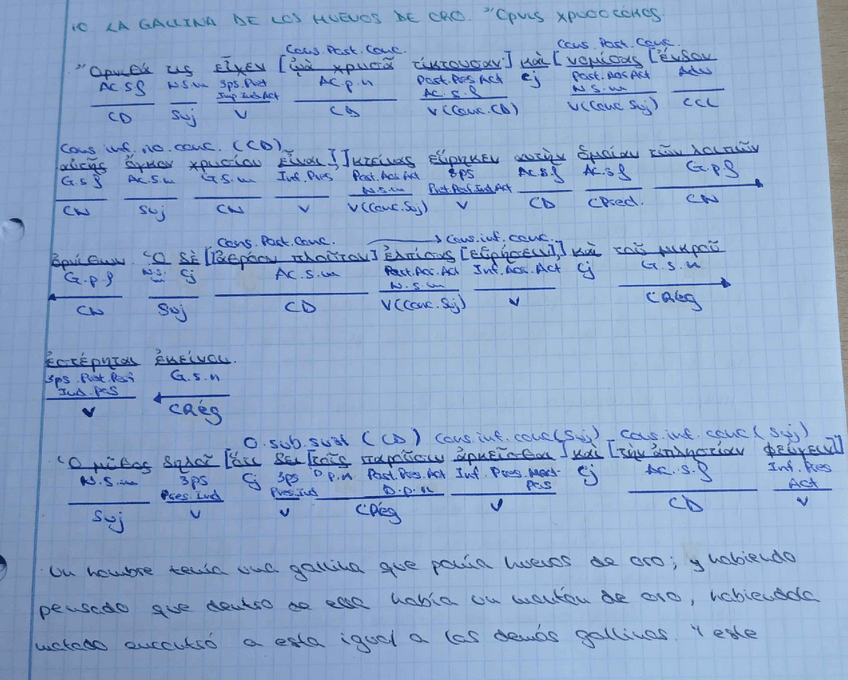 10 LA GALLINA DE LOS HUEVOS DE ORO. Ὄρνις χρυσοτόκος.
Cons. Part. Conc. Cons. Part. Conc.
Ὄρνιθά τις εἶχεν [ᾠὰ χρυσᾶ τίκτουσαν] καὶ [νομίσας [ἔνδον
AC.S.f N.S.m 3ps Pret Imp. Ind. Act AC.p.n Part. Pres Act AC.S.f cj Part. Aor. Act N.S.m Adv
CD Suj V CD V(Conc. CD) V(Conc. Suj) CCL
Cons. inf. no. conc. (CD)
αὐτῆς ὄγκον χρυσίου εἶναι,]] κτείνας εὕρηκεν αὐτὴν ὁμοίαν τῶν λοιπῶν
G.S.f AC.S.m G.S.n Inf. Pres. Part. Aor. Act N.S.m 3ps Pret. Per. Ind Act AC.S.f AC.S.f G.p.f
CN Suj CN V V(Conc. Suj) V CD CPred. CN
Cons. Part. Conc. Cons. inf. conc.
ὀρνίθων. Ὁ δὲ [ἀθρόον πλοῦτον] ἐλπίσας [εὑρήσειν,]] καὶ τοῦ μικροῦ
G.p.f N.S.m Cj AC.S.m Part. Aor. Act N.S.m Inf. Aor. Act Cj G.S.n
CN Suj CD V(Conc. Suj) V CRég
ἐστέρηται ἐκείνου.
3ps. Pret. Perf Ind. Pas G.S.n
V CRég
O. sub. sust (CD) Cons. inf. conc (Suj) Cons. inf. conc (Suj)
Ὁ μῦθος δηλοῖ [ὅτι δεῖ [τοῖς παροῦσιν ἀρκεῖσθαι] καὶ [τὴν ἀπληστίαν φεύγειν]]
N.S.m 3ps Pres. Ind Cj 3ps Pres. Ind D.p.n Part. Pres. Act D.p.n Inf. Pres. Med-Pas Cj AC.S.f Inf. Pres Act
Suj V V CRég V CD V
Un hombre tenía una gallina que ponía huevos de oro; y habiendo
pensado que dentro de ella había un montón de oro, habiéndola
matado encontró a esta igual a las demás gallinas. Y este